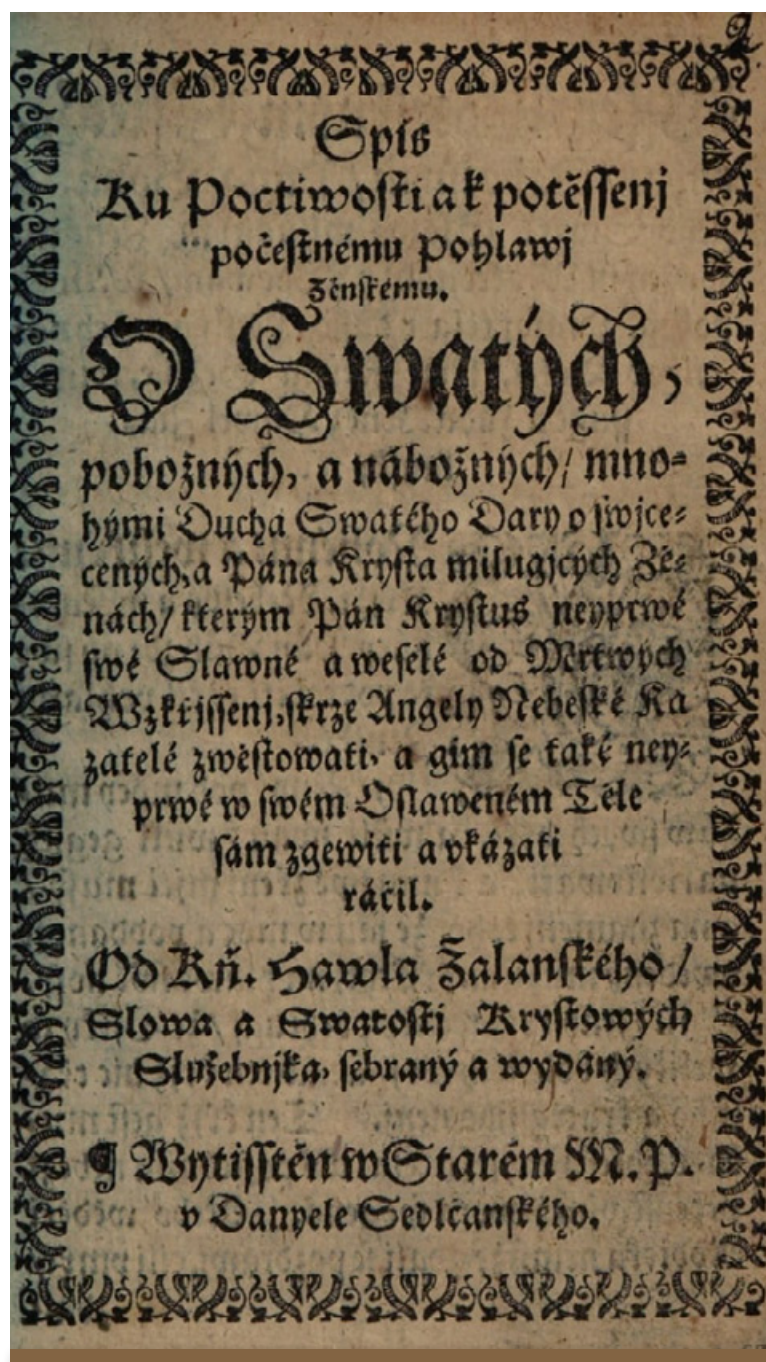 Spis
Ku Poctiwosti a k potěssenj
počestnému Pohlawj
Ženskému.
O Swatých,
pobožných, a nábožných/ mno-
hými Ducha Swatého Dary o swjce-
cených, a Pána Krysta milugjcých Že-
nách/ kterým Pán Krystus neyprwé
swé Slawné a weselé od Mrtwých
Wzkřjssenj, skrze Angely Nebeské Ka
zatelé zwěstowati, a gim se také ney-
prwé w swém Oslaweném Těle
sám zgewiti a vkázati
ráčil.
Od Kň. Hawla Žalanského/
Slowa a Swatostj Krystowých
Služebnjka, sebraný a wydaný.
¶ Wytisstěn w Starém M. P.
v Danyele Sedlčanského.